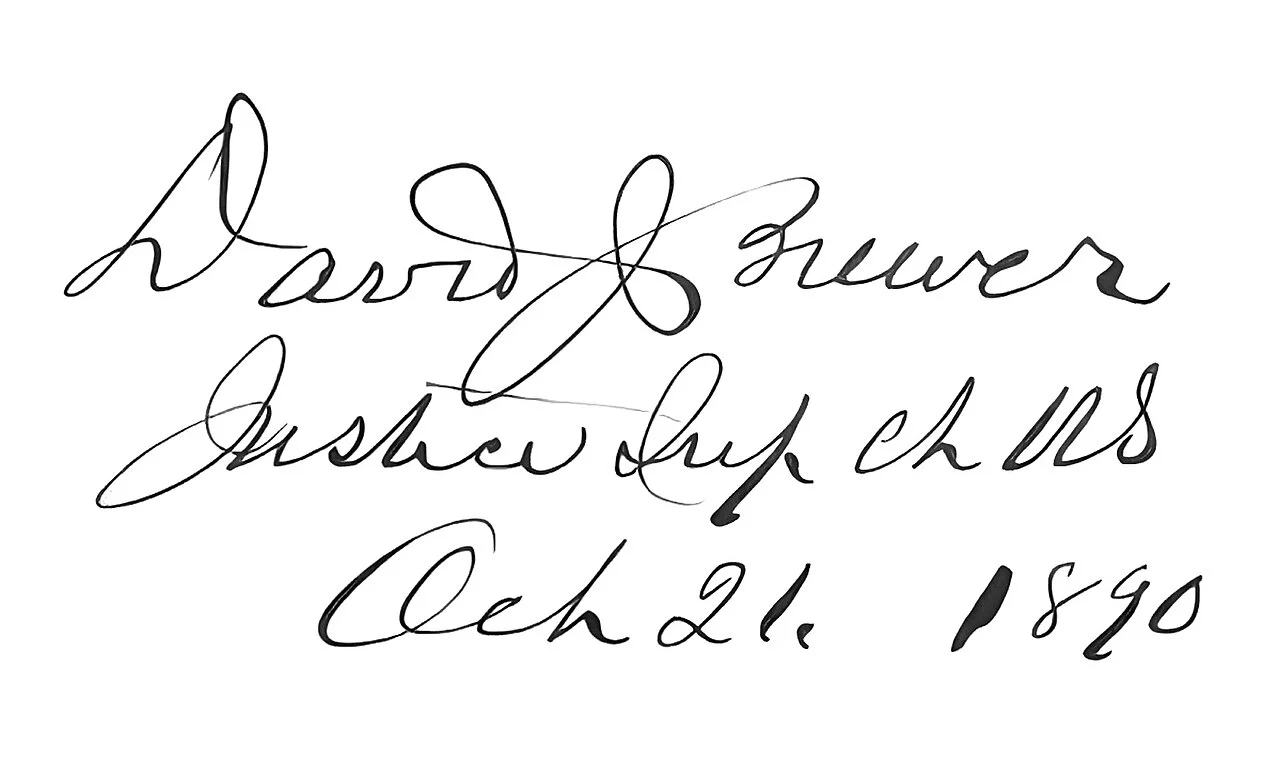 David J Brewer
Justice Sup Ct US
Oct 21. 1890